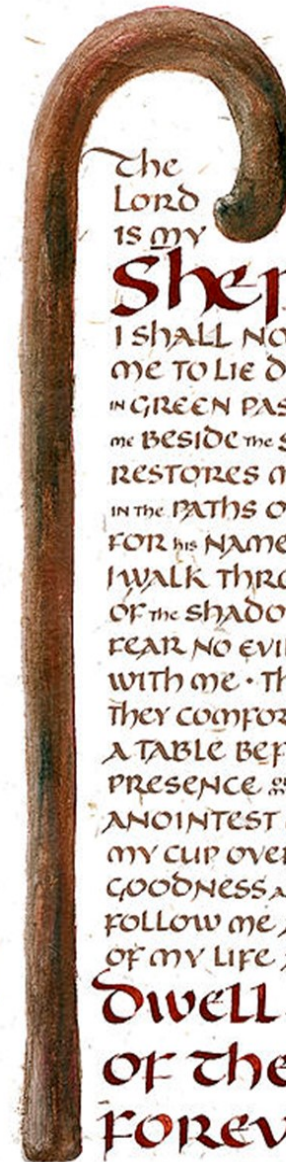 The
LORD
IS MY
Shep
I SHALL NO
ME TO LIE D
IN GREEN PAS
ME BESIDE THE S
RESTORES M
IN THE PATHS O
FOR his NAME
I WALK THRO
OF THE SHADO
FEAR NO EVIL
WITH ME · Th
They COMFOR
A TABLE BEF
PRESENCE
ANOINTEST
MY CUP OVER
GOODNESS A
FOLLOW ME
OF MY LIFE
DWELL
OF The
FOREV